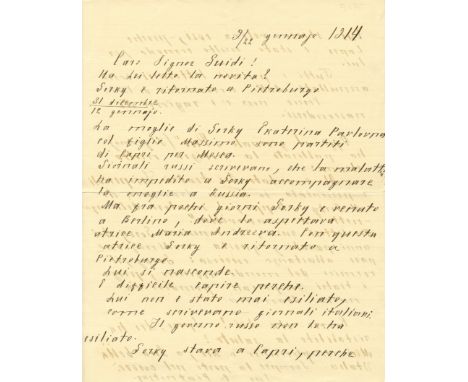 9/22 gennajo 1914.
Caro Signor Guidi!
Ha Lei letto la novità?
Gorky è ritornato a Pietroburgo
31 dicembre
12 gennajo.
La moglie di Gorky Ekaterina Pavlovna
col figlio Massimo sono partiti
di Capri per Mosca.
Giornali russi scrivevano, che la malattia
ha impedito a Gorky accompagnare
la moglie a Russia.
Ma fra pochi giorni Gorky è venuto
a Berlino, dove lo aspettava
atrice Maria Andreeva. Con questa
atrice Gorky è ritornato a
Pietroburgo.
Lui si nasconde.
È difficile capire perchè.
Lui non è stato mai esiliato,
come scrivevano giornali italiani.
Il governo russo non lo ha
esiliato.
Gorky stava a Capri, perche